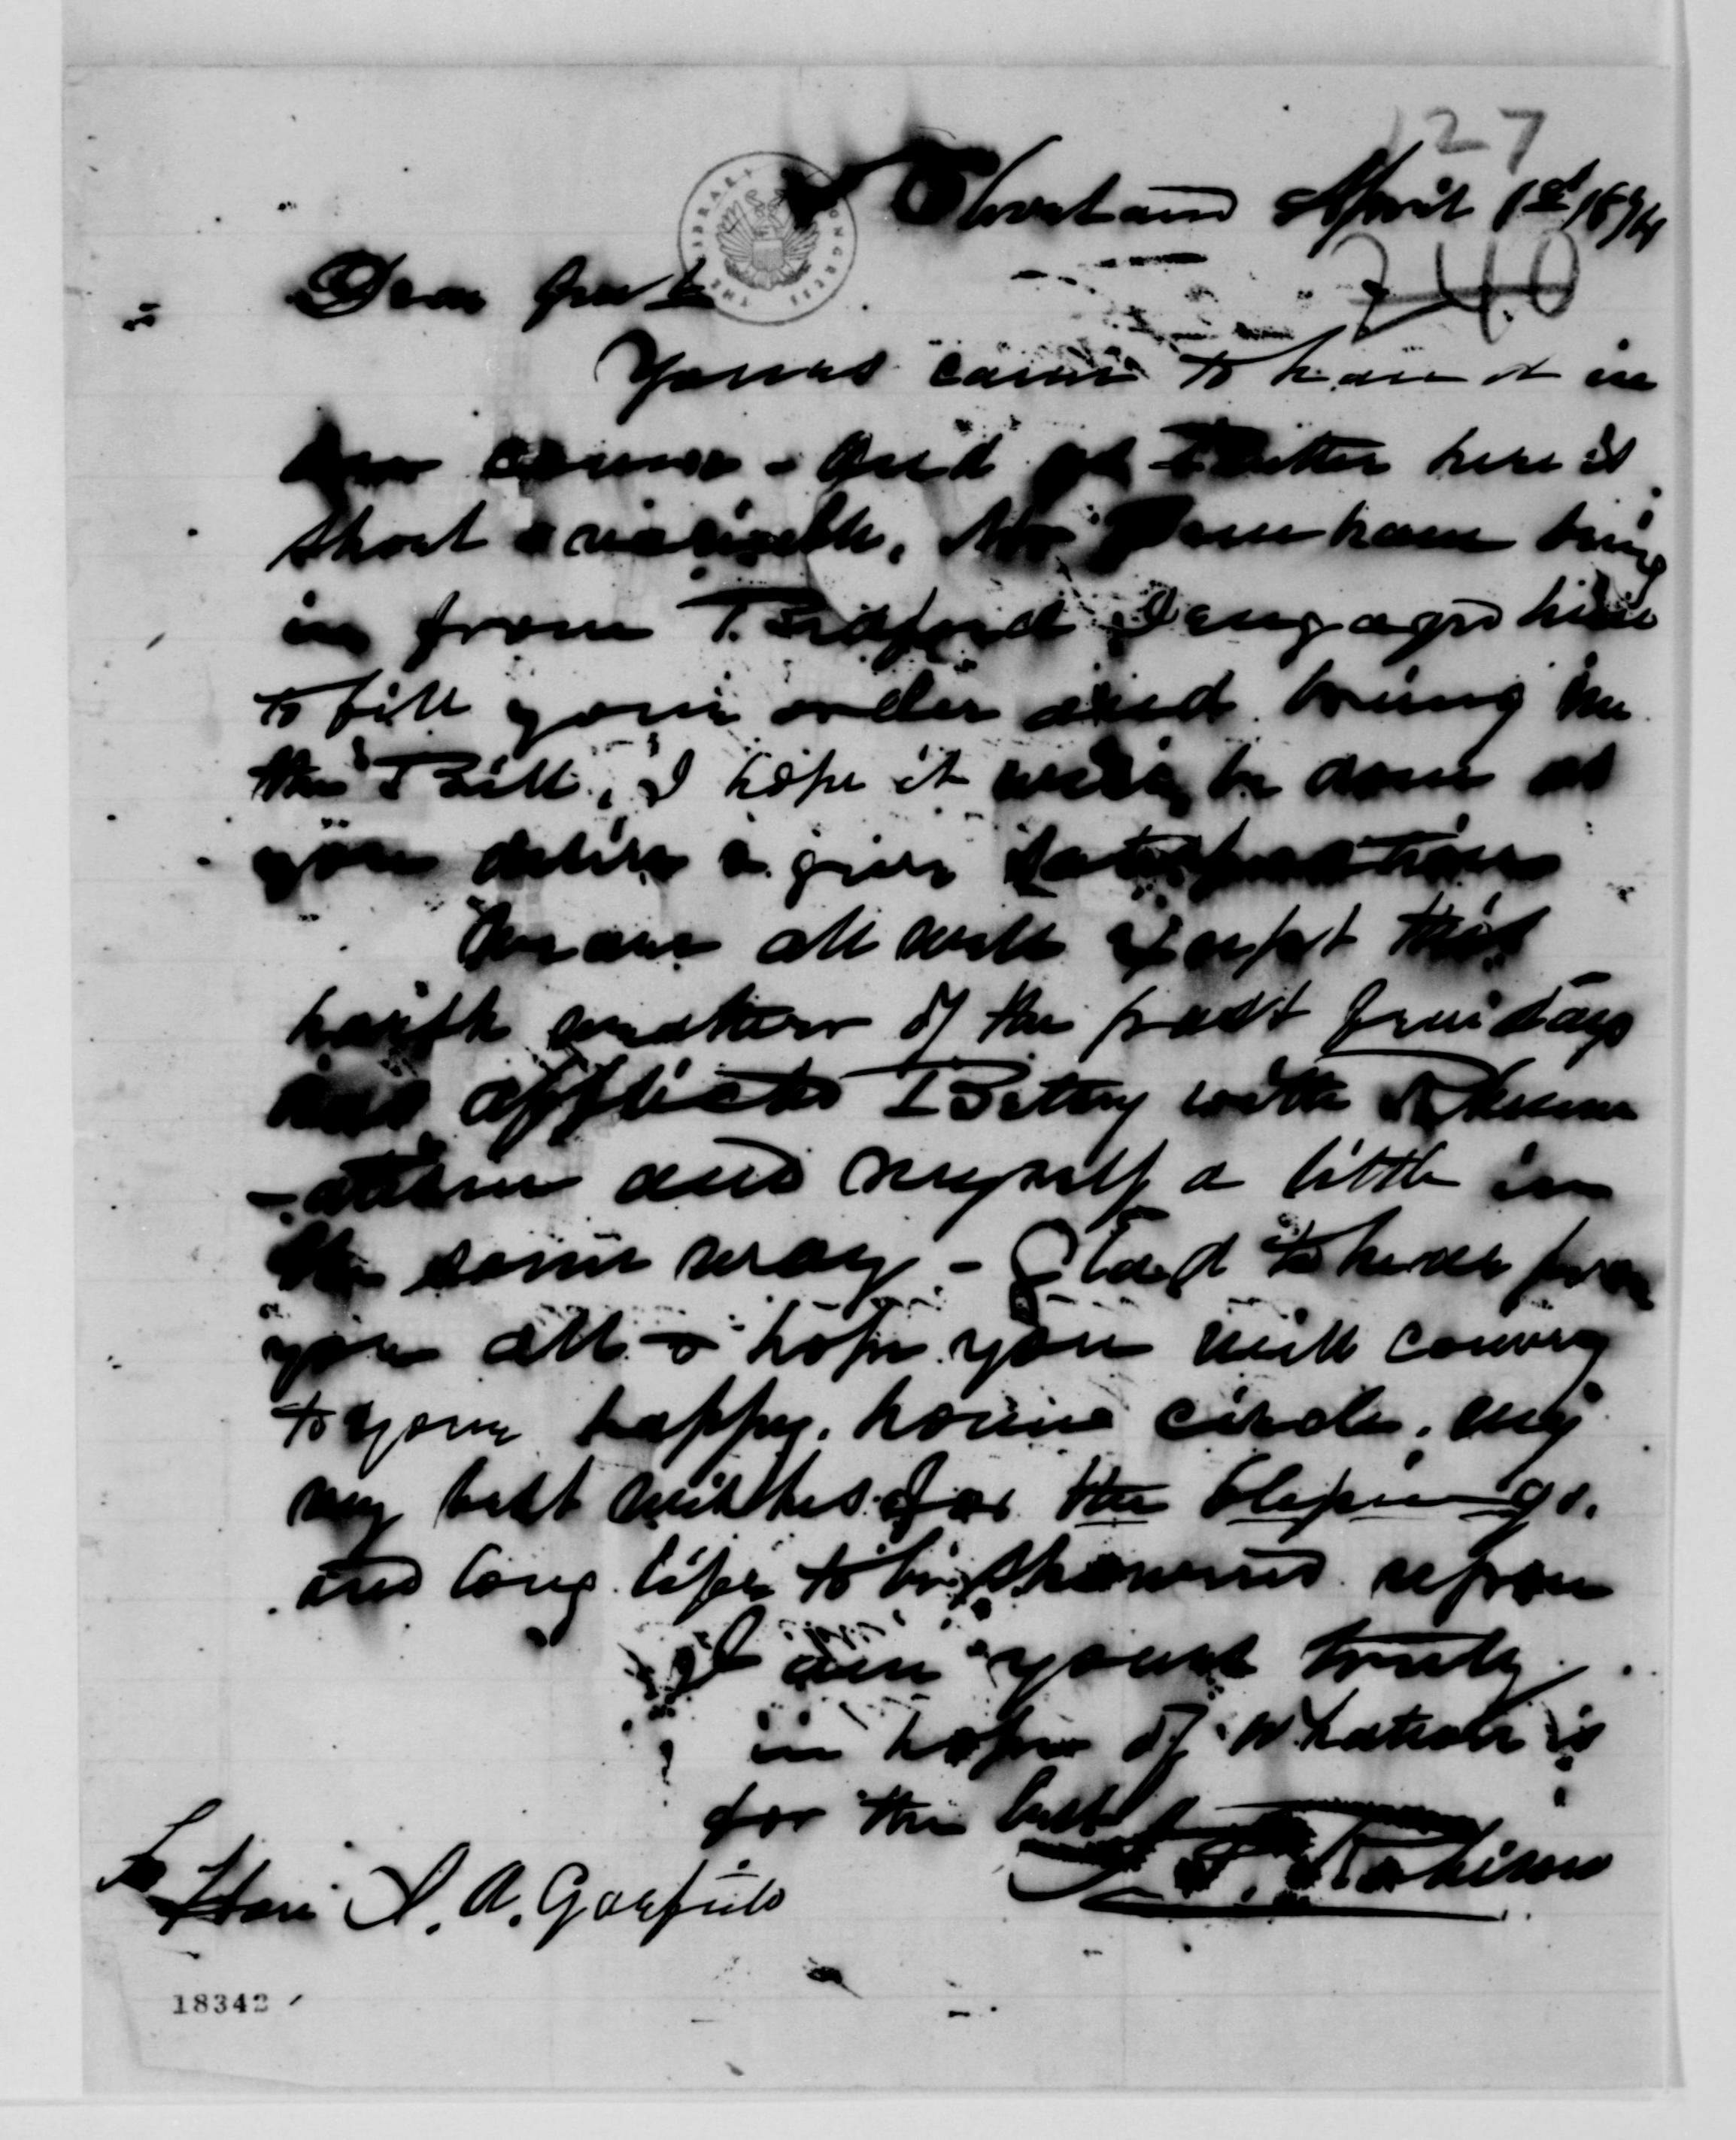 127
Cleveland April 1st 1874
240
Dear friend
Yours came to hand in
due course - and as Butter here is
short & variable, Mr Dunham being
in from Bedford I engaged him
to fill your order and bring me
the Bill, I hope it will be done as
you desire & give satisfaction
We are all well except this
harsh weather of the past few days
has afflicted Betsy with Rheum
-atism and myself a little in
the same way - Glad to hear from
you all & hope you will convey
to your happy home circle, my
my best wishes for the blessings.
and long life to be showered upon
I am yours truly
in hope of whatever is
for the best
Robison
To Hon J. A. Garfield
18342